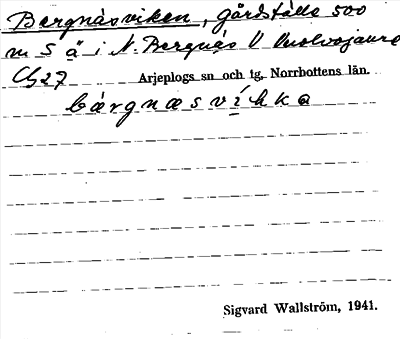 Bergnäsviken, gårdställe 500
m S ä i N. Bergnäs V Vuolvojaure
Cg27 Arjeplogs sn och tg, Norrbottens län.
bærgnæsvíkka
Sigvard Wallström, 1941.